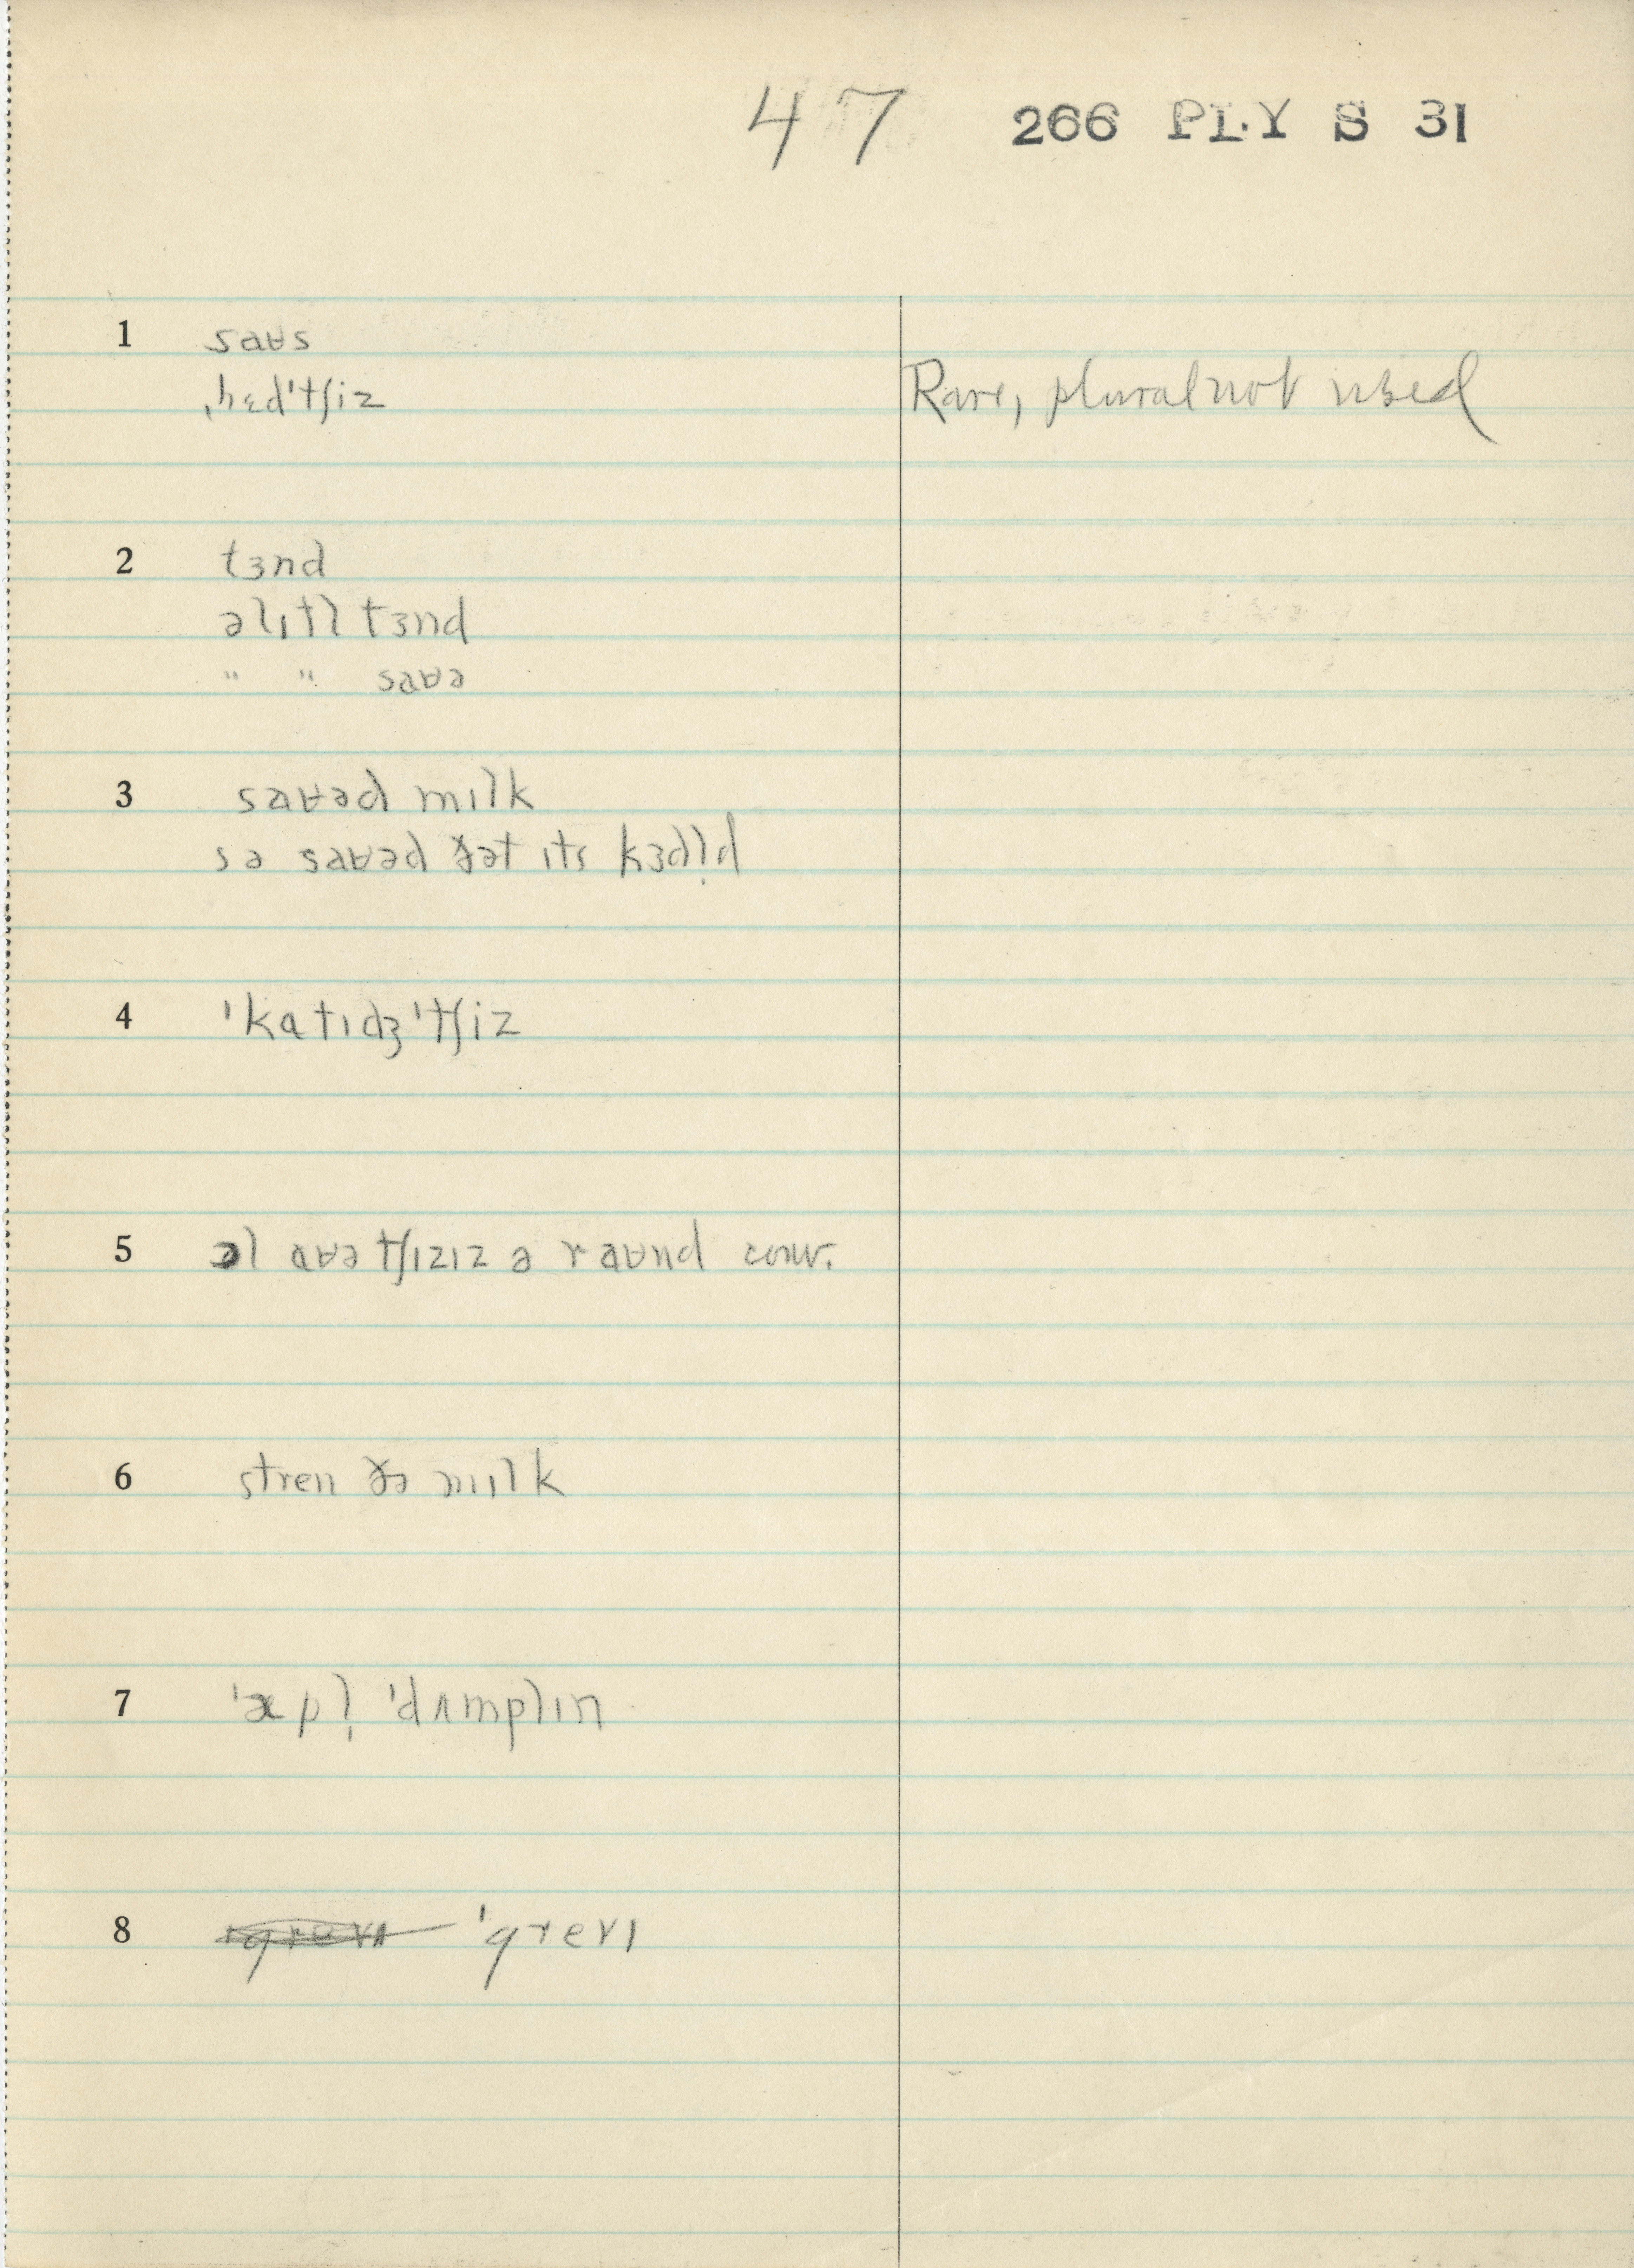 47 266 PLY S 31
1 saʉs
ˌhɛdˈtʃiz Rare, plural not used
2 tɜnd
əlɪtl tɜnd
" " saʉə
3 saʉəd mɪlk
sə saʉəd ðət ɪts kɜdl̩d
4 ˈkatɪdʒˈtʃiz
5 ɔl aʉə tʃɪzɪz ə raʉnd conv.
6 stren ðə mɪlk
7 ˈæpl̩ ˈdʌmplɪn
8 ˈgrevɪ